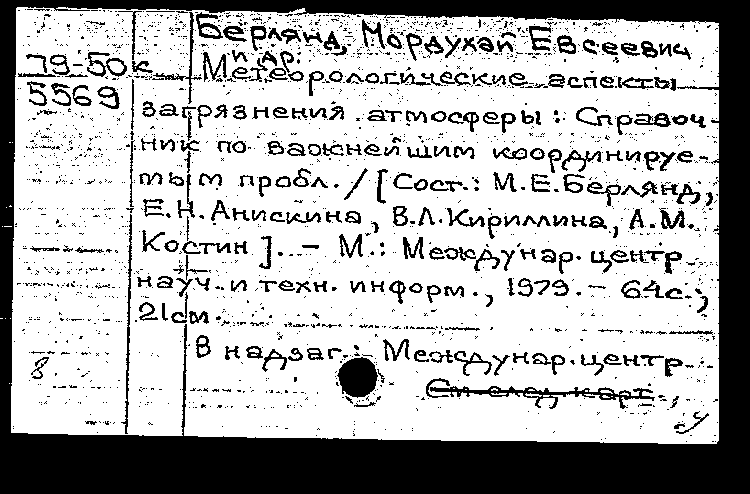 Берлянд, Мордухай Евсеевич
и др.
79-50к Метеорологические аспекты
5569
загрязнения атмосферы: Справоч-
ник по важнейшим координируе-
мым пробл. / [Сост.: М.Е.Берлянд,
Е.Н.Анискина, В.Л.Кириллина, А.М.
Костин]. - М.: Междунар. центр
науч. и техн. информ., 1979. - 64с.;
21см.
В надзаг.: Междунар. центр
8
См след карт.,